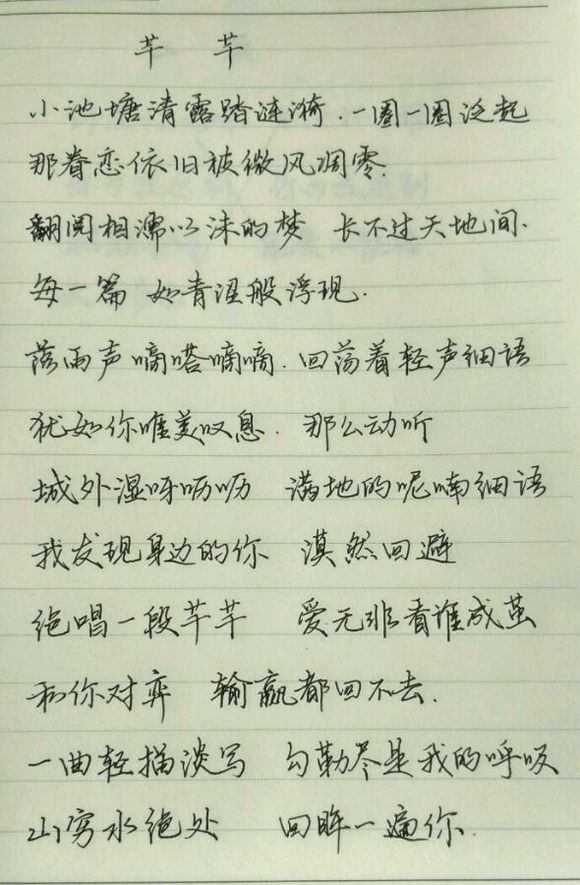 芊 芊
小池塘清露踏涟漪.一圈一圈泛起
那眷恋依旧被微风凋零.
翻阅相濡以沫的梦 长不过天地间.
每一篇 如青涩般浮现.
落雨声嘀嗒嘀嘀.回荡着轻声细语
犹如你唯美叹息. 那么动听
城外湿呀呖呖 满地的呢喃细语
我发现身边的你 漠然回避
绝唱一段芊芊 爱无非看谁成茧
和你对弈 输赢都回不去.
一曲轻描淡写 勾勒尽是我的呼吸
山穷水绝处 回眸一遍你.